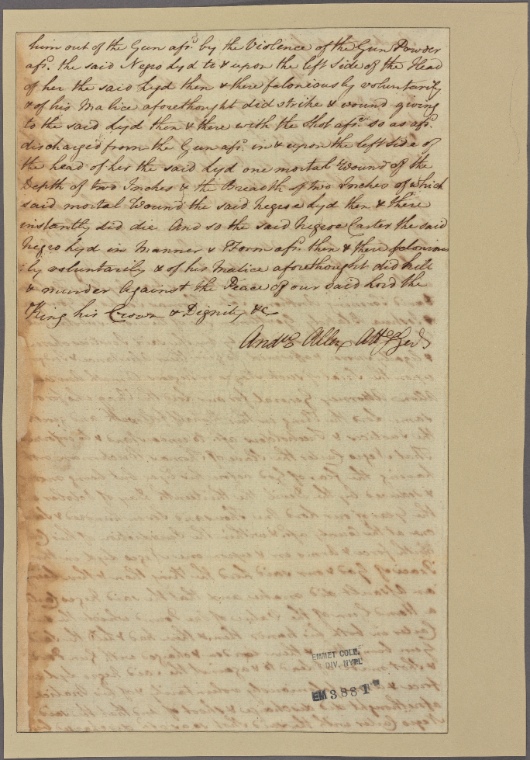 him out of the Gun afs. by the Violence of the Gun Powder
afs. the said Negro Lyd to & upon the left Side of the Head
of her the said Lyd then & there feloniously voluntarily
& of his Malice aforethought did strike & wound giving
to the said Lyd then & there with the Shot afs. so as afs.
discharged from the Gun afs. in & upon the left Side of
the head of her the said Lyd one mortal Wound of the
Depth of two Inches & the Breadth of two Inches of which
said mortal Wound the said Negroe Lyd then & there
instantly did die And so the said Negroe Cester the said
Negro Lyd in Manner & Form afs. then & there felonious
ly voluntarily & of his Malice aforethought did kill
& murder Against the Peace of our said Lord the
King his Crown & Dignity &c
And. Allen Att. Gen.
EMMET COLL.
DIV. NYPL
EM 3881